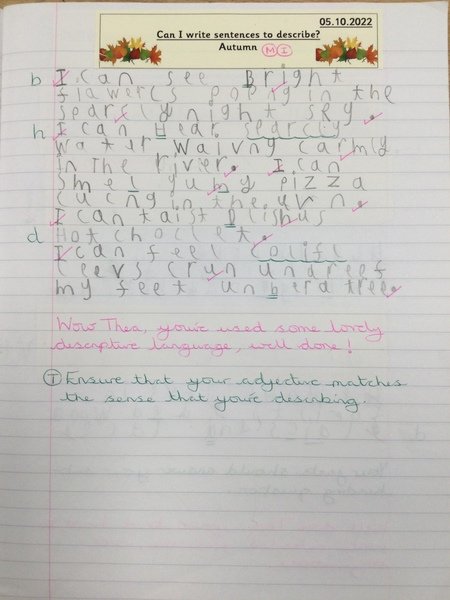 05.10.2022
Can I write sentences to describe?
Autumn M I
b I can see Bright
flawers popig in the
sparcly night sky.
h I can Hear searcly
water waivng carmly
in The river. I can
Smel yumy pizza
cucng in the uvn.
I can taist dlishus
d Hot choclet.
I can feel colifl
leevs crun undreef
my feet unbrd tree.
Wow Thea, you've used some lovely
descriptive language, well done!
T Ensure that your adjective matches
the sense that you're describing.